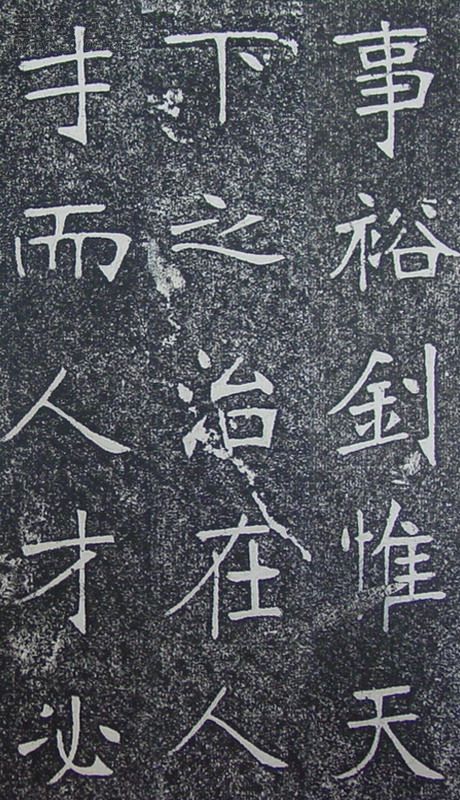 事裕釗惟天
下之治在人
才而人才必